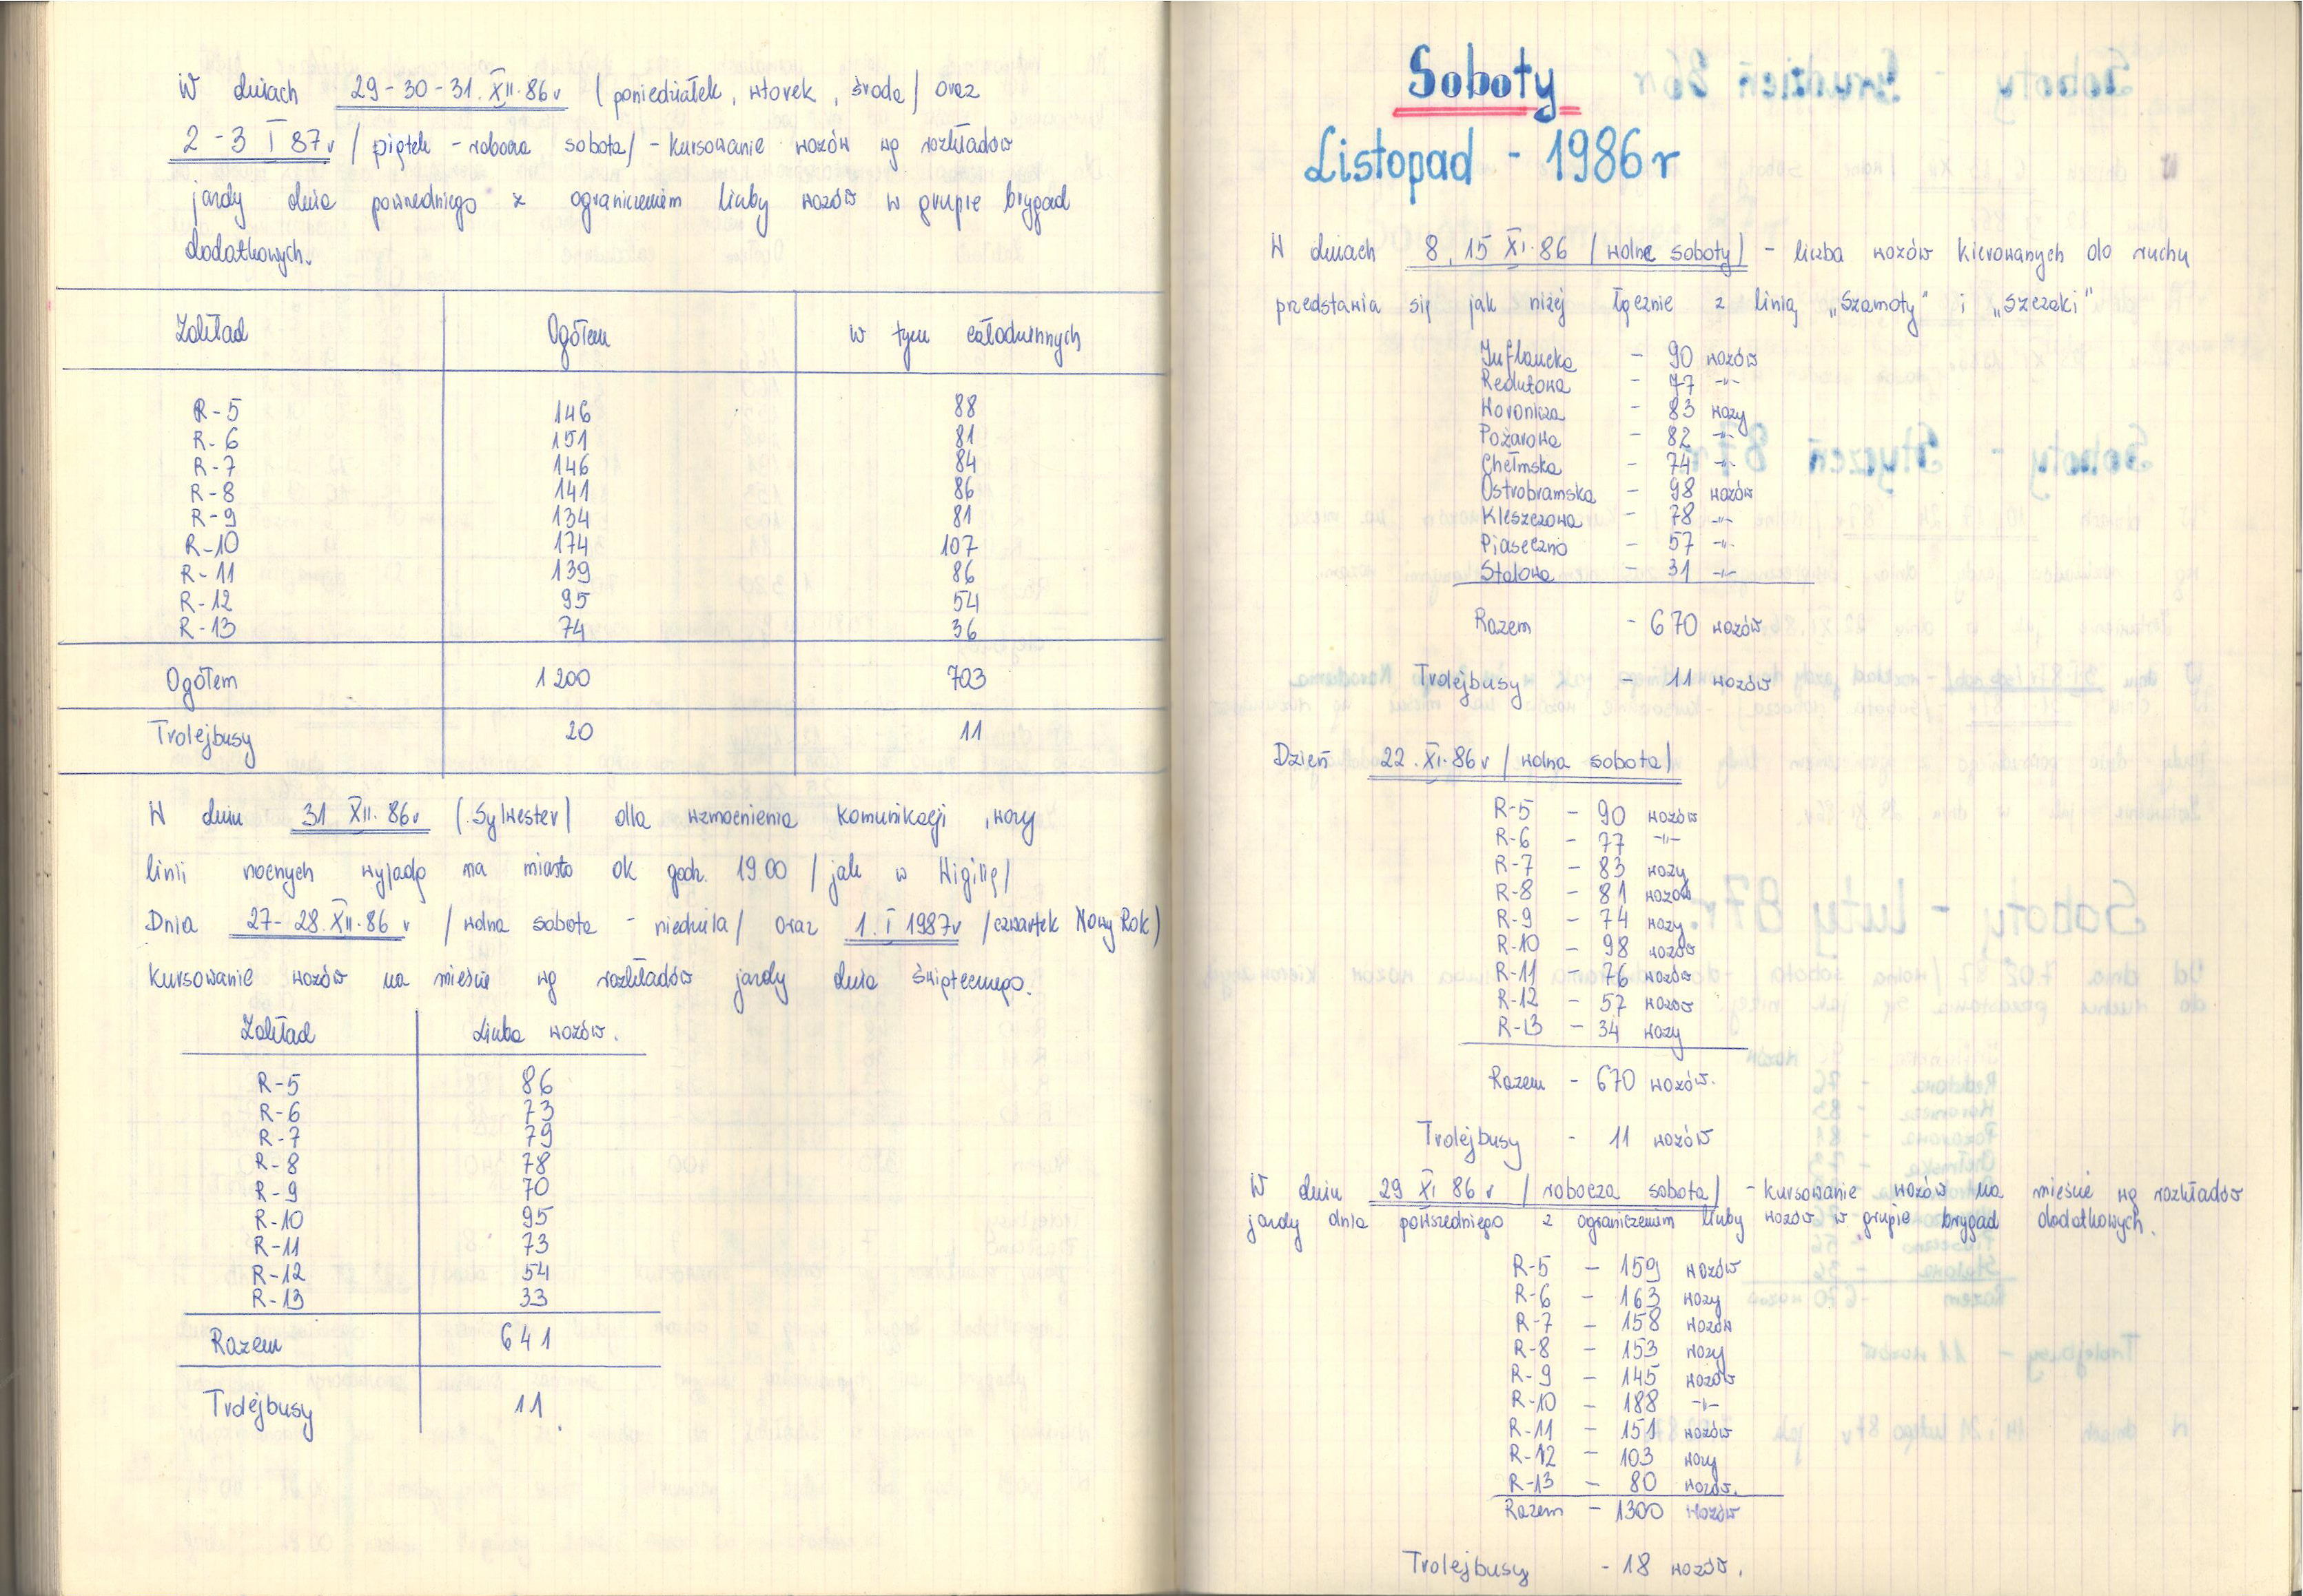 W dniach 29-30-31.XII.86r (poniedziałek, wtorek, środa) oraz
2-3 I 87r / piątek - robocza sobota / - kursowanie wozów wg rozkładów
jazdy dnia powszedniego z ograniczeniem liczby wozów w grupie brygad
dodatkowych.
Zakład Ogółem w tym całodziennych
R-5 146 88
R-6 151 81
R-7 146 84
R-8 141 86
R-9 134 81
R-10 174 107
R-11 139 86
R-12 95 54
R-13 74 36
Ogółem 1200 703
Trolejbusy 20 11
W dniu 31 XII.86r (Sylwester) dla wzmocnienia komunikacji, wozy
linii nocnych wyjadą na miasto ok godz. 19.00 / jak w Wigilię /
Dnia 27-28.XII.86 r / wolna sobota - niedziela / oraz 1.I 1987r / czwartek Nowy Rok )
kursowanie wozów na mieście wg rozkładów jazdy dnia świątecznego.
Zakład Liczba wozów.
R-5 86
R-6 73
R-7 79
R-8 78
R-9 70
R-10 95
R-11 73
R-12 54
R-13 33
Razem 641
Trolejbusy 11
Soboty
Listopad - 1986 r
W dniach 8, 15 XI.86 / wolne soboty / - liczba wozów kierowanych do ruchu
przedstawia się jak niżej łącznie z linią „Szamoty" i „Szczaki"
Inflancka - 90 wozów
Redutowa - 77 -"-
Woronicza - 83 wozy
Pożarowa - 82 -"-
Chełmska - 74 -"-
Ostrobramska - 98 wozów
Kleszczowa - 78 -"-
Piaseczno - 57 -"-
Stalowa - 31 -"-
Razem - 670 wozów
Trolejbusy - 11 wozów
Dzień 22.XI.86r / wolna sobota /
R-5 - 90 wozów
R-6 - 77 -"-
R-7 - 83 wozy
R-8 - 81 wozów
R-9 - 74 wozy
R-10 - 98 wozów
R-11 - 76 wozów
R-12 - 57 wozów
R-13 - 34 wozy
Razem - 670 wozów.
Trolejbusy - 11 wozów
W dniu 29 XI 86 r / robocza sobota / - kursowanie wozów na mieście wg rozkładów
jazdy dnia powszedniego z ograniczeniem liczby wozów w grupie brygad dodatkowych.
R-5 - 159 wozów
R-6 - 163 wozy
R-7 - 158 wozów
R-8 - 153 wozy
R-9 - 145 wozów
R-10 - 188 -"-
R-11 - 151 wozów
R-12 - 103 wozy
R-13 - 80 wozów.
Razem - 1300 wozów
Trolejbusy - 18 wozów.